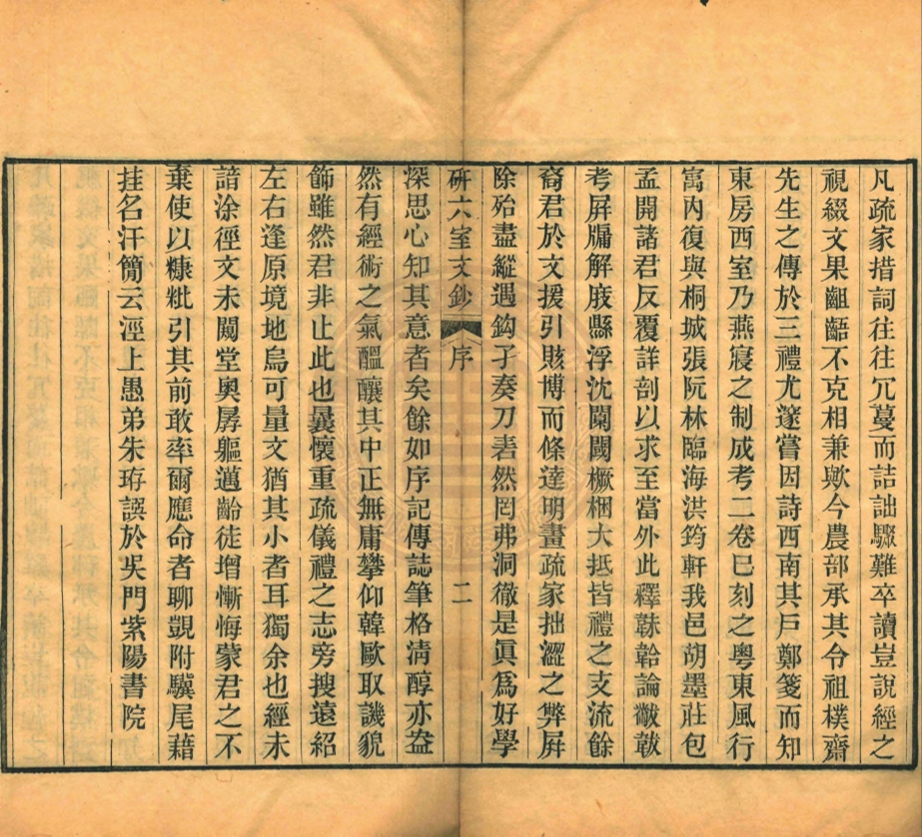 凡疏家措詞往往冗蔓而詰詘驟難卒讀豈說經之
視綴文果齟齬不克相兼歟今農部承其令祖樸齋
先生之傳於三禮尤邃嘗因詩西南其戶鄭箋而知
東房西室乃燕寢之制成考二卷巳刻之粵東風行
㝢內復與桐城張阮林臨海洪筠軒我邑胡墨莊包
孟開諸君反覆詳剖以求至當外此釋韎韐論黻韍
考屏牖解庪縣浮沈闑閾橛梱大抵皆禮之支流餘
裔君於文援引賅博而條達明晝疏家拙澀之弊屏
除殆盡縱遇鈎子奏刀砉然罔弗洞徹是眞爲好學
研六室文鈔 序 二
深思心知其意者矣餘如序記傳誌筆格淸醇亦盎
然有經術之氣醞釀其中正無庸攀仰韓歐取譏貌
飾雖然君非止此也曩懷重疏儀禮之志旁搜遠紹
左右逢原境地烏可量文猶其小者耳獨余也經未
諳涂徑文未闚堂奧孱軀邁齡徒增慚悔蒙君之不
棄使以糠粃引其前敢率爾應命者聊覬附驥尾藉
挂名汗簡云涇上愚弟朱珔譔於吳門紫陽書院